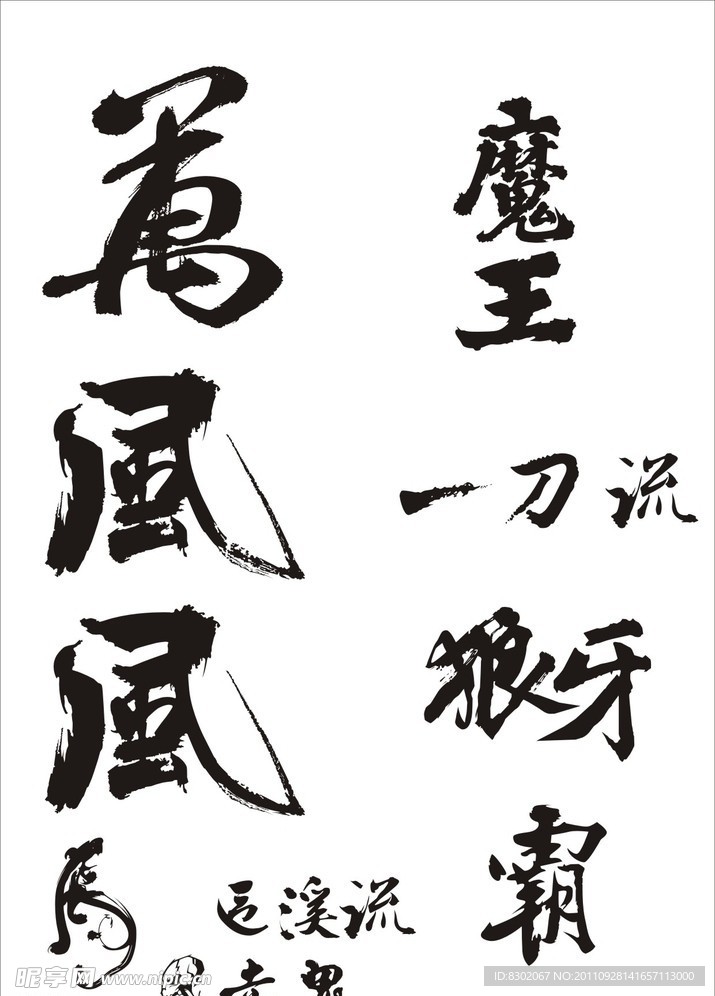 萬
魔
王
風
一刀流
風
狼牙
霸
馬
溪流
昵享网 www.nipic.cn
ID:8302067 NO:20110928141657113000